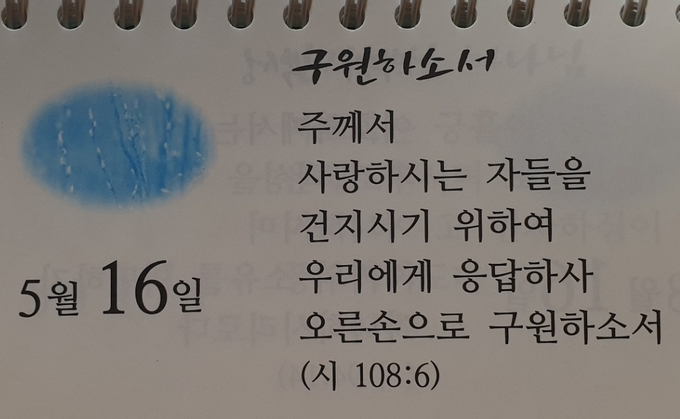 구원하소서
주께서
사랑하시는 자들을
건지시기 위하여
우리에게 응답하사
오른손으로 구원하소서
(시 108:6)
5월 16일